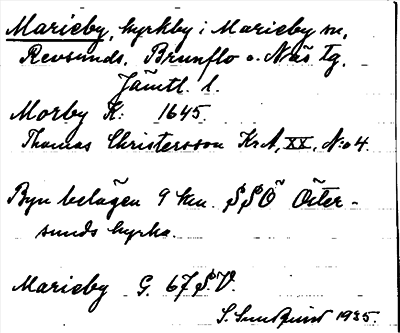 Marieby, kyrkby i Marieby sn,
Revsunds, Brunflo o. Näs tg,
Jämtl. l.
Morby K: 1645.
Thomas Christersson KrA, XX, N:o 4.
Byn belägen 9 km. SSÖ Öster-
sunds kyrka.
Marieby G. 67 SV.
S. Sundqvist 1935.